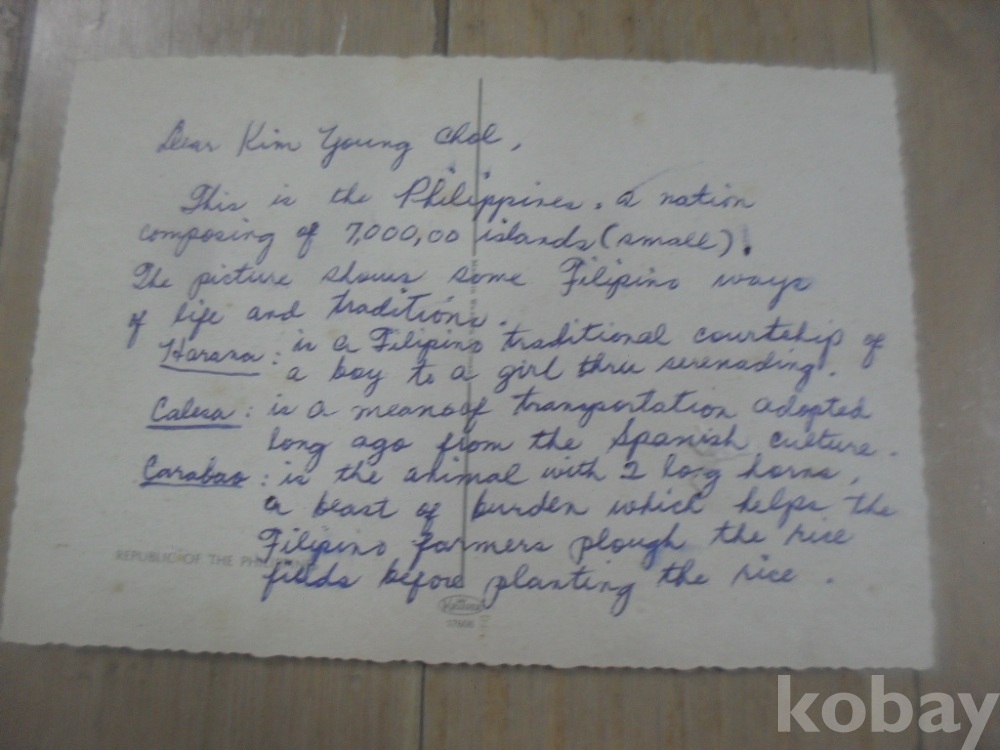 Dear Kim Young Chol,
This is the Philippines. a nation
composing of 7,000,00 islands (small).
The picture shows some Filipino ways
of life and traditions.
Harana: is a Filipino traditional courtship of
a boy to a girl thru serenading.
Calesa: is a means of transportation adopted
long ago from the Spanish culture.
Carabao: is the animal with 2 long horns,
a beast of burden which helps the
Filipino farmers plough the rice
fields before planting the rice.
REPUBLIC OF THE PHILIPPINES
kobay